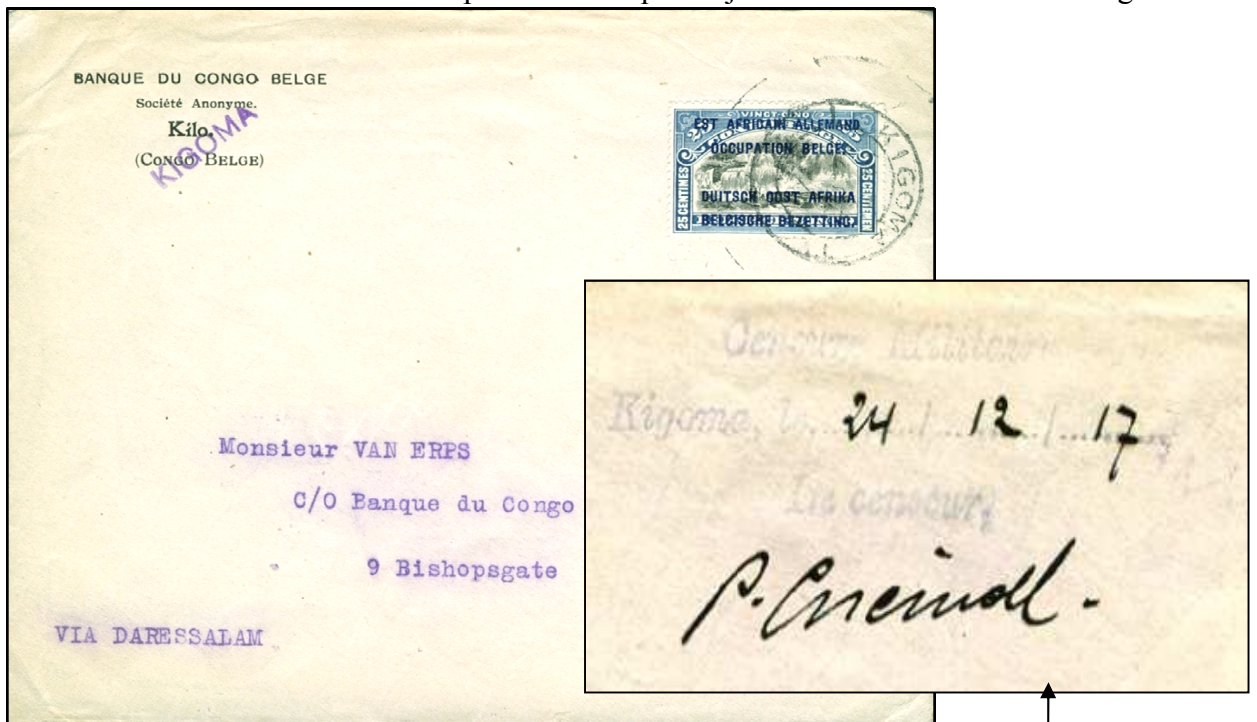 BANQUE DU CONGO BELGE
Société Anonyme.
Kilo.
(CONGO BELGE)
KIGOMA
VINGT-CINQ
EST AFRICAIN ALLEMAND
OCCUPATION BELGE.
DUITSCH OOST AFRIKA
BELGISCHE BEZETTING.
25 CENTIMES
25 CENTIEMEN
KIGOMA
Monsieur VAN ERPS
C/O Banque du Congo
9 Bishopsgate
VIA DARESSALAM
Censure Militaire
Kigoma, le 24 / 12 / 17
Le censeur,